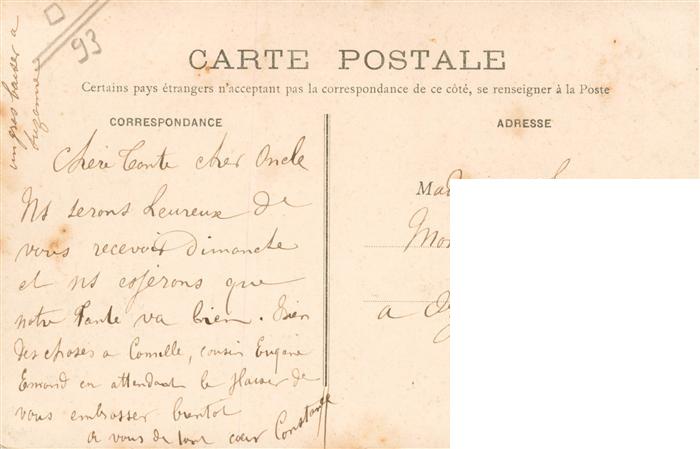 un gros baiser a
Suzanne
93
CARTE POSTALE
Certains pays étrangers n'acceptant pas la correspondance de ce côté, se renseigner à la Poste
CORRESPONDANCE
ADRESSE
Chère Tante cher Oncle
Ns serons heureux de
vous recevoir Dimanche
et ns espérons que
notre Tante va bien. Bien
des choses a Camille, cousin Eugène
Edmond en attendant le plaisir de
vous embrasser bientôt
a vous de tout cœur Constance
Mad
a